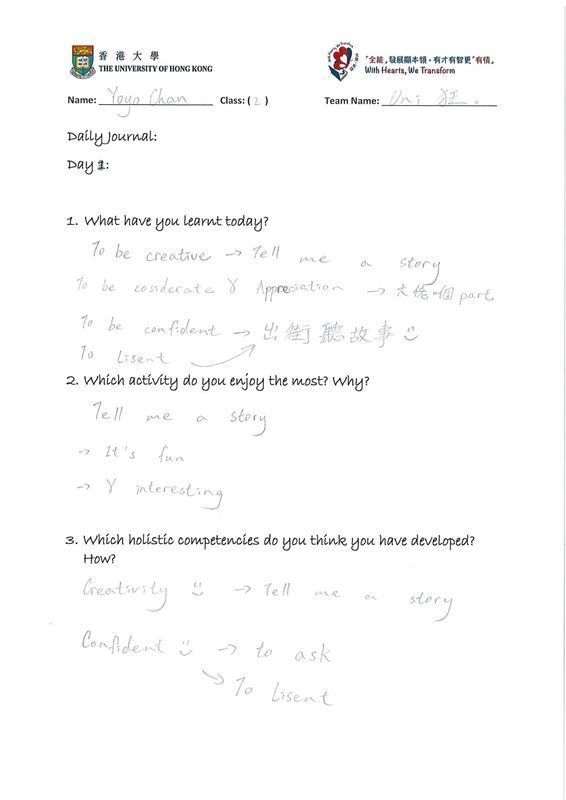 香港大學
THE UNIVERSITY OF HONG KONG
「全能」發展顯本領，有才有智更「有情」
With Hearts, We Transform
Name: Yoyo Chan Class: (2) Team Name: Uni 狂.
Daily Journal:
Day 1:
1. What have you learnt today?
To be creative → Tell me a story
To be cosiderate & Appreciation → 大佬個part
To be confident → 出街聽故事
To Lisent
2. Which activity do you enjoy the most? Why?
Tell me a story
→ It's fun
→ & interesting
3. Which holistic competencies do you think you have developed?
How?
Creativity → Tell me a story
Confident → to ask
To Lisent